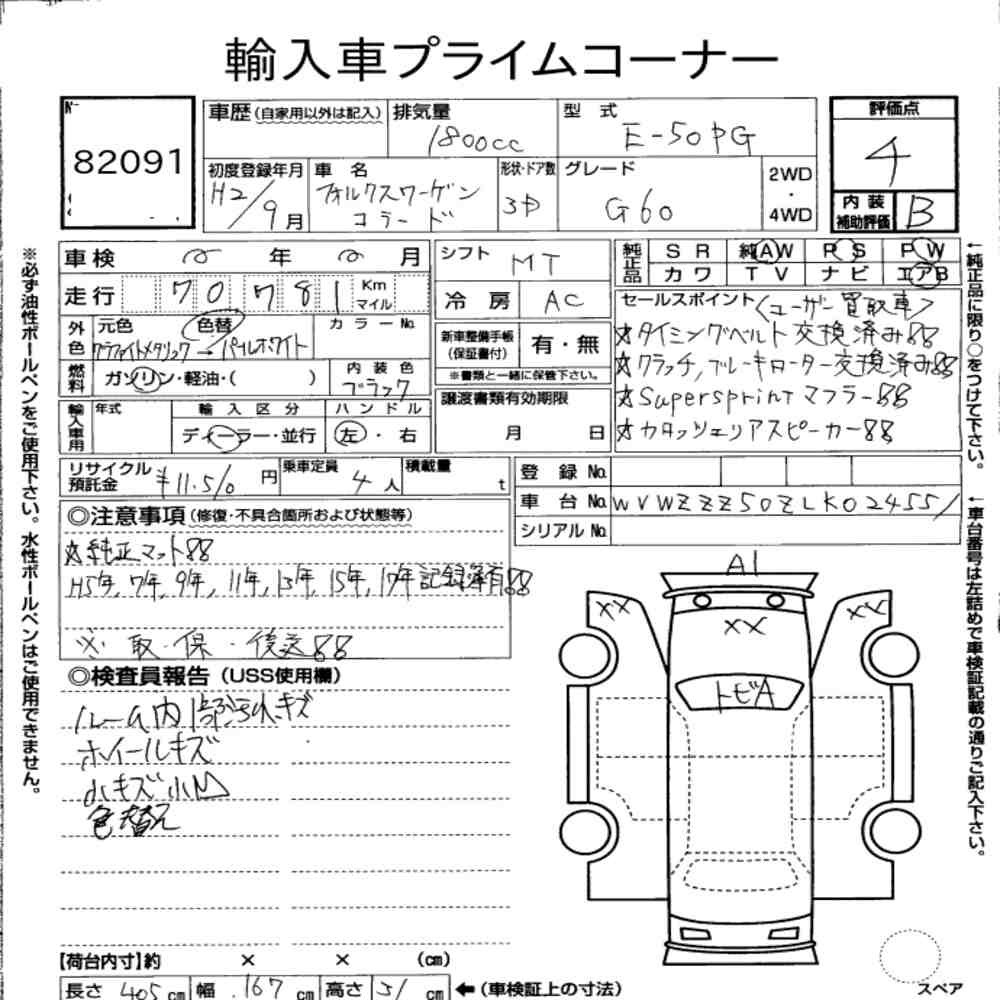 輸入車プライムコーナー
№ 82091
車歴(自家用以外は記入) 排気量 1800cc 型 式 E-50PG 評価点 4
初度登録年月 H2/9月 車 名 フォルクスワーゲン コラード 形状・ドア数 3D グレード G60 2WD・4WD 内装補助評価 B
※必ず油性ボールペンをご使用下さい。水性ボールペンはご使用できません。
車検 年 月 シフト MT
走行 70781 Km マイル 冷房 AC
純正品 SR 純AW PS PW
カワ TV ナビ エアB
外色 元色 色替 カラーNo.
グラファイトメタリック→パールホワイト
新車整備手帳(保証書付) 有・無
※書類と一緒に保管下さい。
燃料 ガソリン・軽油・( ) 内装色 ブラック
輸入車用 年式 輸入区分 ディーラー・並行 ハンドル 左・右
譲渡書類有効期限 月 日
セールスポイント〈ユーザー買取車〉
☆タイミングベルト交換済み!!
☆クラッチ,ブレーキローター交換済み!!
☆Supersprintマフラー!!
☆カロッツェリアスピーカー!!
←純正品に限り○をつけて下さい。
リサイクル預託金 ¥11.510円 乗車定員 4人 積載量 t
登録No.
車台No. WVWZZZ50ZLK024551
シリアルNo.
←車台番号は左詰めで車検証記載の通りご記入下さい。
◎注意事項(修復・不具合箇所および状態等)
☆純正マット!!
H5年,7年,9年,11年,13年,15年,17年記録簿有!!
※取・保・後送!!
◎検査員報告(USS使用欄)
ルーム内
ホイールキズ
小キズ小凹
色替え
A1
××
××
××
トビA
【荷台内寸】約 × × (cm)
長さ 405cm 幅 167cm 高さ 131cm ←(車検証上の寸法)
スペア